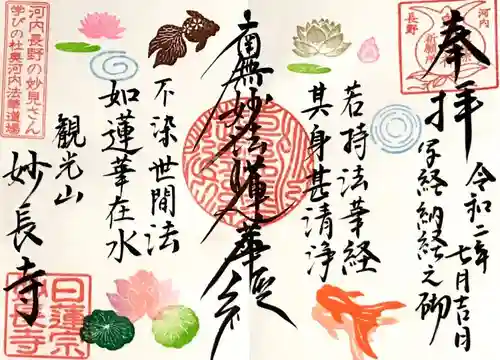 奉拝
写経納経之砌
令和二年
七月吉日
若持法華経
其身甚清浄
南無妙法蓮華経
不染世間法
如蓮華在水
観光山
妙長寺
河内長野の妙見さん
学びの杜奥河内法華道場
日蓮宗
妙長寺
河内
長野
祈願所